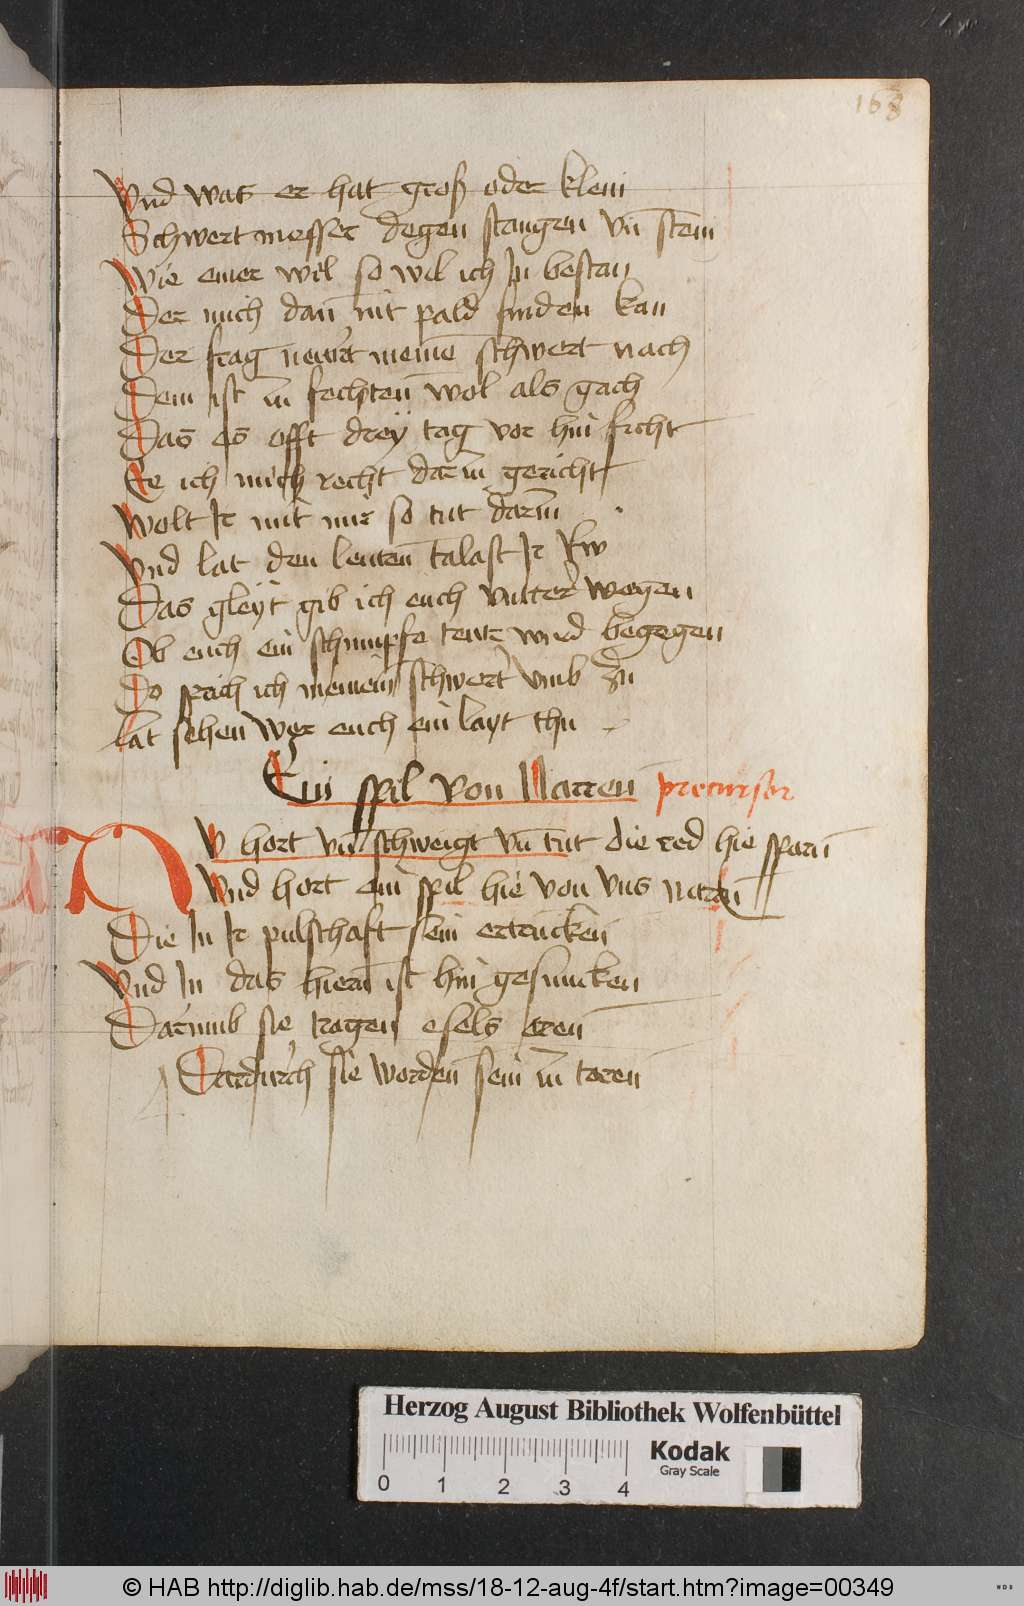 168
Vnd was er hat groß oder klein
Schwert messer degen stangen vn̄ stein
Wie einer wil so wil ich In bestan
Der mich dan̄ nit pald finden kan
Der frag newr̄t meinē schwert nach
Dem ist in̄ fechten̄ wol als gach
Das es offt drey tag vor hin ficht
Ee ich mich recht dar in̄ gericht
Wolt Ir mit mir so tut darin̄
Vnd lat den leuten talast Ir Rw
Das gleyt gib ich euch vnter wegen
Ob euch ein schimpfe tentz wird begegen
Do sprich ich meinem schwert vmb zu
Lat sehen wer euch ein layt thu
Ein spil von Narren precursor
NV hort vn̄ schweigt vn̄ tut die red hie sparn̄
Vnd hort ein spil hie von vns narrn̄
Die In Ir pulschaft sein ertruncken
Vnd In das hiern̄ ist hin gesuncken
Darumb sie tragen esels oren̄
Dardurch sie worden̄ sein in̄ toren̄
Herzog August Bibliothek Wolfenbüttel
Kodak
Gray Scale
0 1 2 3 4
© HAB http://diglib.hab.de/mss/18-12-aug-4f/start.htm?image=00349